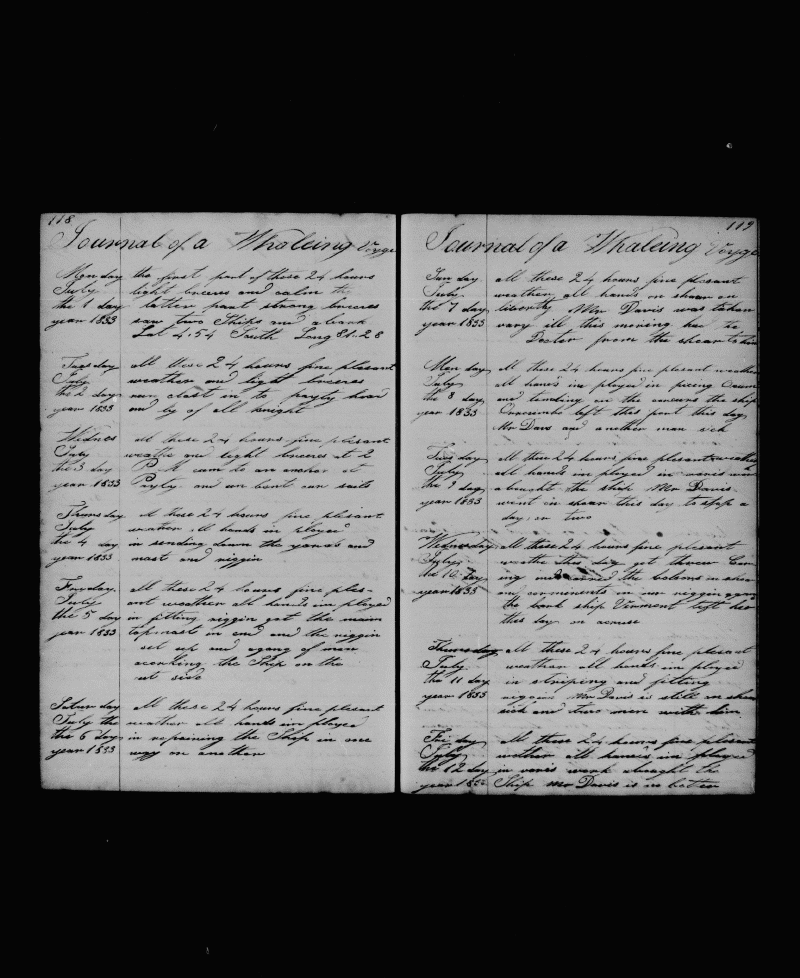 118
Journal of a Whaleing Voyge
Mon day the first part of these 24 hours
July light breeres and calm the
the 1 day latter paart strong breeres
year 1833 saw two Ships and a bark
Lat 4.54 South Long 81.28
Tues day all these 24 hours fine plesant
July weather and light breeres
the 2 day run clost in to payty head
year 1833 and by of all knight
Widnes all these 24 hours fine plesant
July weathe and light breeres at 2
the 3 day P M cam to an anchor at
year 1833 Payty and un bent our sails
Thurs day all these 24 hours fine plesant
July weather all hands in ployed
the 4 day in sending down the yards and
year 1833 mast and riggin
Fryday all these 24 hours fine ples-
July ant weather all hands im ployed
the 5 day in fitting riggin got the main
year 1833 topmast in end and the riggin
set up and a gang of men
a corking the Ship on the
ut side
Satur day all these 24 hours fine plesant
July the weather all hands im ployed
the 6 day in repairing the Ship in one
year 1833 way or another
119
Journal of a Whaleing Voyge
Sun day all these 24 hours fine plesant
July weather all hands on shear on
the 7 day liberty Mr Davis was taken
year 1833 vary ill this morning had the
Docter from the shear to him
Mon day all these 24 hours fine plesant weather
July all hands im ployed in
the 8 day and tending on the the ship
year 1833 left this port this day
Mr Davis and another man sick
Tues day all these 24 hours fine plesant weather
July all hands im ployed in
the 9 day abought the ship Mr Davis
year 1833 went on shear this day to stop a
day or two
Wednesday all these 24 hours fine plesant
July weathe this day got threw
the 10 day ing and
year 1833 and in our riggin
the bark ship left her
this day on a cruse
Thursday all these 24 hours fine plesant
July weather all hands im ployed
the 11 day in striping and fitting
year 1833 riggin Mr Davis is still on shear
sick and two men with him
Fri day all these 24 hours fine plesant
July wether all hands im ployed
the 12 day in work abought the
year Ship Mr Davis is no better